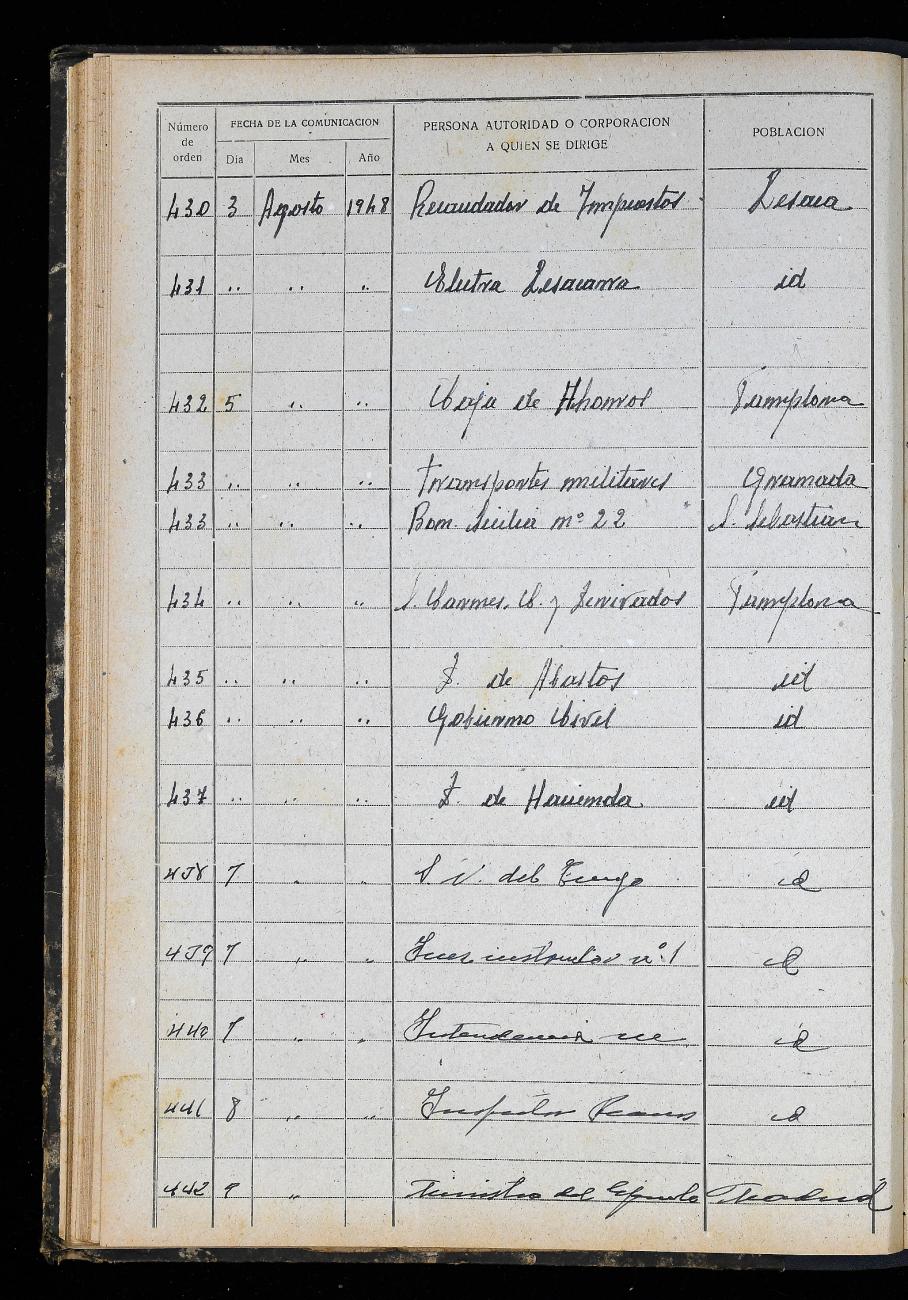 Número de orden FECHA DE LA COMUNICACION PERSONA AUTORIDAD O CORPORACION A QUIEN SE DIRIGE POBLACION
Día Mes Año
430 3 Agosto 1948 Recaudador de Impuestos Lesaca
431 " " " Electra Lesacarra id
432 5 " " Caja de Ahorros Pamplona
433 " " " Transportes militares Granada
433 " " " Bon. Sicilia nº 22 S. Sebastian
434 " " " S. Carnes, C. y Derivados Pamplona
435 " " " D. de Abastos id
436 " " " Gobierno Civil id
437 " " " D. de Hacienda id
438 7 " " S. N. del Trigo id
439 7 " " Juez instructor nº 1 id
440 7 " " Intendencia id
441 8 " " Inspector id
442 9 " Ministro del Ejercito Madrid